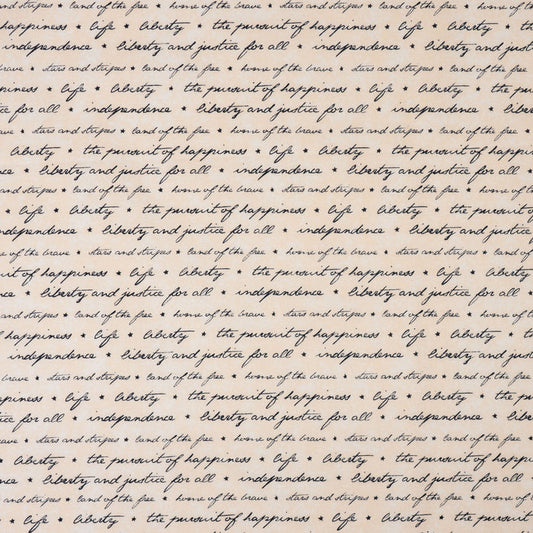 and stripes * land of the free * home of the brave * stars and stripes * land of the free * home of the
happiness * life * liberty * the pursuit of happiness * life * liberty * the
* independence * liberty and justice for all * independence * liberty and just
brave * stars and stripes * land of the free * home of the brave * stars and stripes * land of the free
piness * life * liberty * the pursuit of happiness * life * liberty * the pur
ce for all * independence * liberty and justice for all * independence * liber
ave * stars and stripes * land of the free * home of the brave * stars and stripes * land of the free *
* liberty * the pursuit of happiness * life * liberty * the pursuit of happin
ce * liberty and justice for all * independence * liberty and justice for all
and stripes * land of the free * home of the brave * stars and stripes * land of the free * home of th
* life * liberty * the pursuit of happiness * life * liberty * the pursuit of
independence * liberty and justice for all * independence * liberty and justice
me of the brave * stars and stripes * land of the free * home of the brave * stars and stripes * land of
uit of happiness * life * liberty * the pursuit of happiness * life * liberty
nce * liberty and justice for all * independence * liberty and justice for all
and stripes * land of the free * home of the brave * stars and stripes * land of the free * home of the
happiness * life * liberty * the pursuit of happiness * life * liberty * the
* independence * liberty and justice for all * independence * liberty and just
brave * stars and stripes * land of the free * home of the brave * stars and stripes * land of the free
ppiness * life * liberty * the pursuit of happiness * life * liberty * the pu
ice for all * independence * liberty and justice for all * independence * liber
ave * stars and stripes * land of the free * home of the brave * stars and stripes * land of the free *
* liberty * the pursuit of happiness * life * liberty * the pursuit of happi
nce * liberty and justice for all * independence * liberty and justice for all
and stripes * land of the free * home of the brave * stars and stripes * land of the free * home of
* life * liberty * the pursuit of happiness * life * liberty * the pursuit of